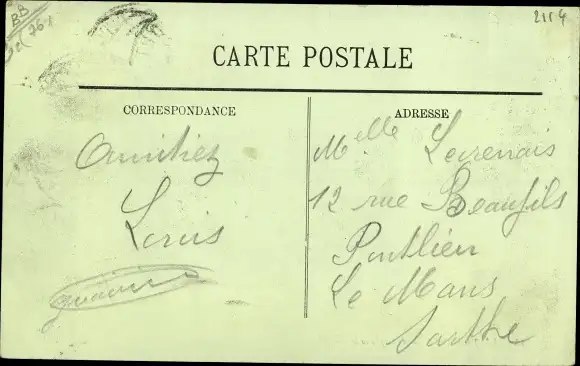 BB
2114
CARTE POSTALE
CORRESPONDANCE
Amitiez
Louis
ADRESSE
Melle Levenais
12 rue Beaufils
Pontlieu
Le Mans
Sarthe